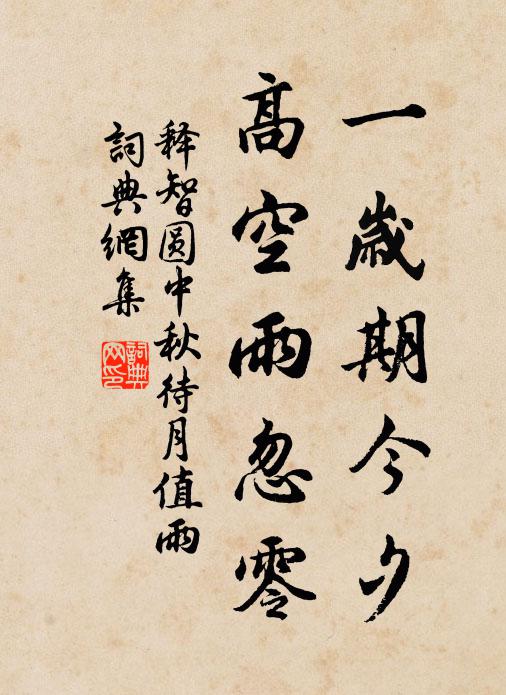 一歲期今夕
高空雨忽零
释智圆中秋待月值雨
詞典網集
詞典網印